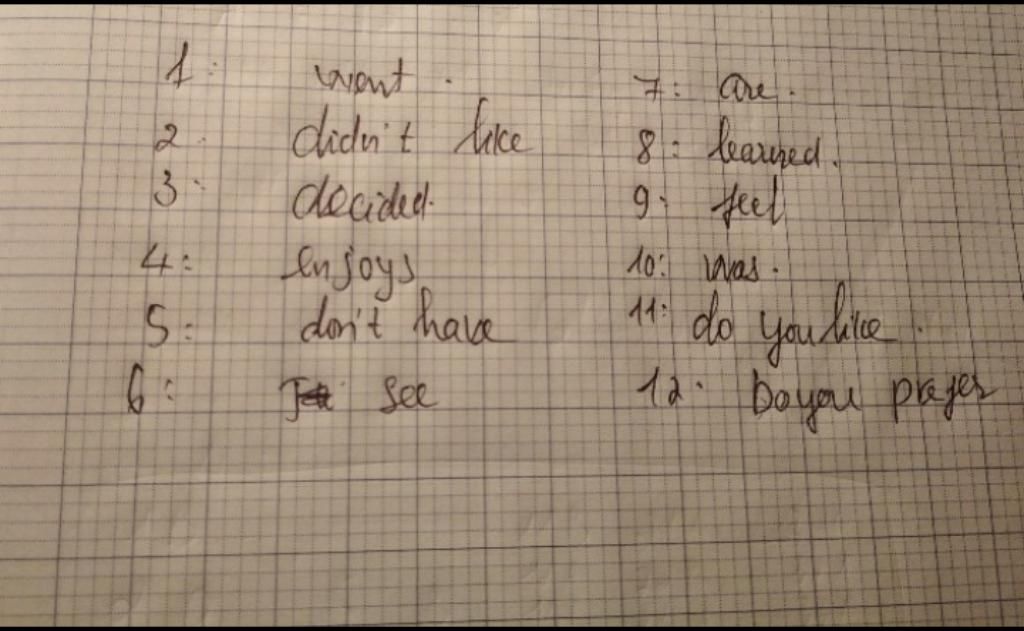 1: went.
2. didn't like
3. decided.
4: enjoys
5: don't have
6: see
7: are.
8: learned.
9: feel
10: was.
11: do you like.
12. Do you prefer